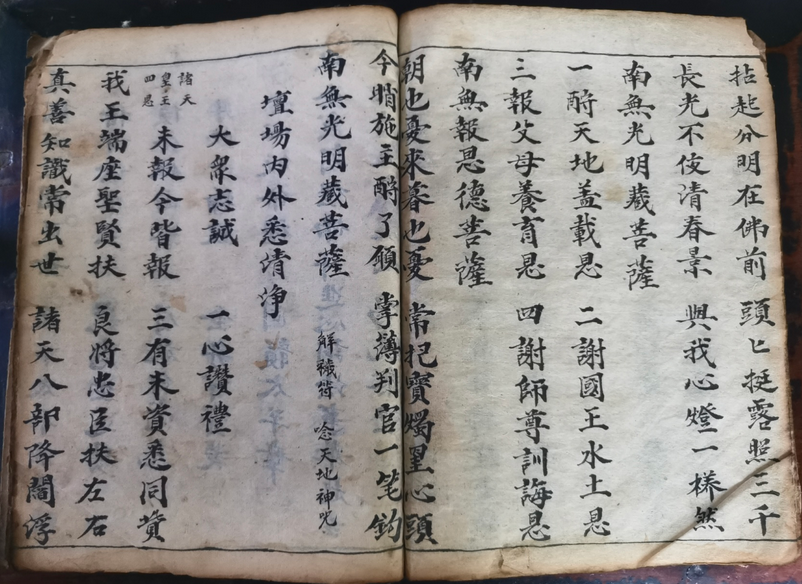 拈起分明在佛前 頭匕挺露照三千
長光不夜清春景 與我心燈一樣然
南無光明藏菩薩
一酧天地盖載恩 二謝國王水土恩
三報父母養育恩 四謝師尊訓誨恩
南無報恩德菩薩
朝也憂來暮也憂 常把寶燭望心頭
今宵施主酧了願 掌簿判官一笔鈎
南無光明藏菩薩
壇場内外悉清淨 解穢符 唸天地神咒
大眾志誠 一心讚禮
諸天皇王四恩 未報今皆報 三有未資悉同資
我王端座聖賢扶 良將忠臣扶左右
真善知識常出世 諸天八部降閻浮